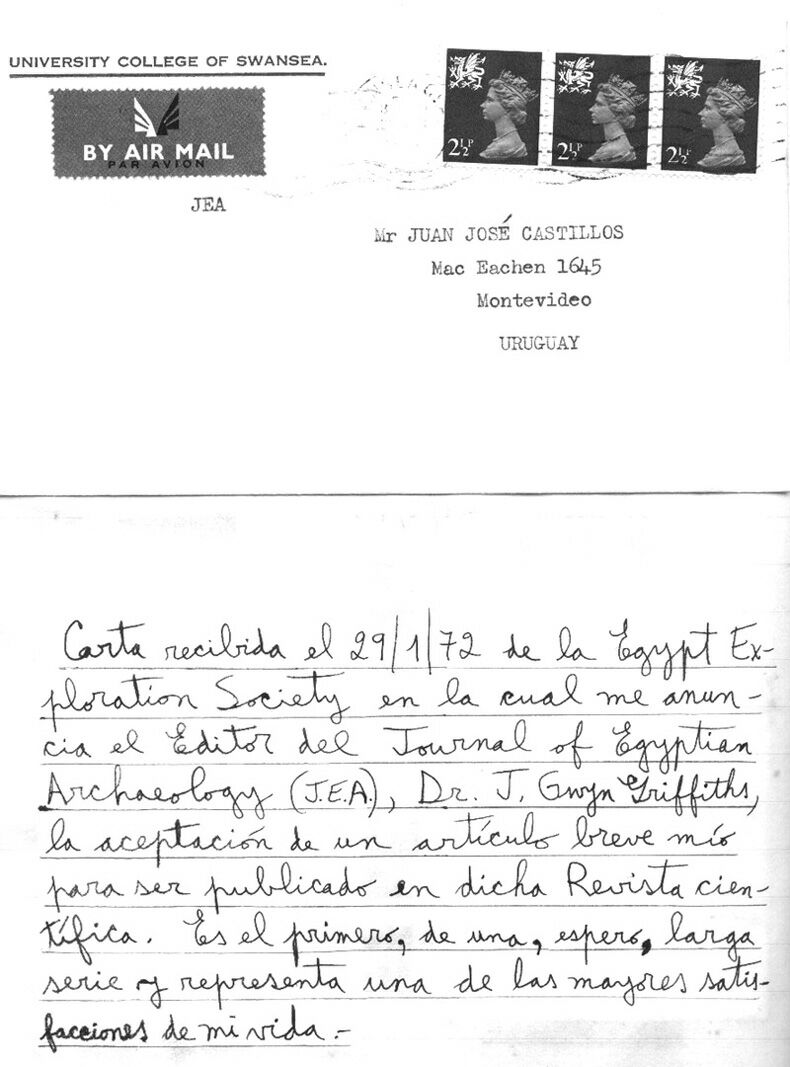 UNIVERSITY COLLEGE OF SWANSEA.
BY AIR MAIL
PAR AVION
2½P
2½P
2½P
JEA
Mr JUAN JOSÉ CASTILLOS
Mac Eachen 1645
Montevideo
URUGUAY
Carta recibida el 29/1/72 de la Egypt Ex-
ploration Society en la cual me anun-
cia el Editor del Journal of Egyptian
Archaeology (J.E.A.), Dr. J. Gwyn Griffiths,
la aceptación de un artículo breve mío
para ser publicado en dicha Revista cien-
tífica. Es el primero, de una, espero, larga
serie y representa una de las mayores satis-
facciones de mi vida.-